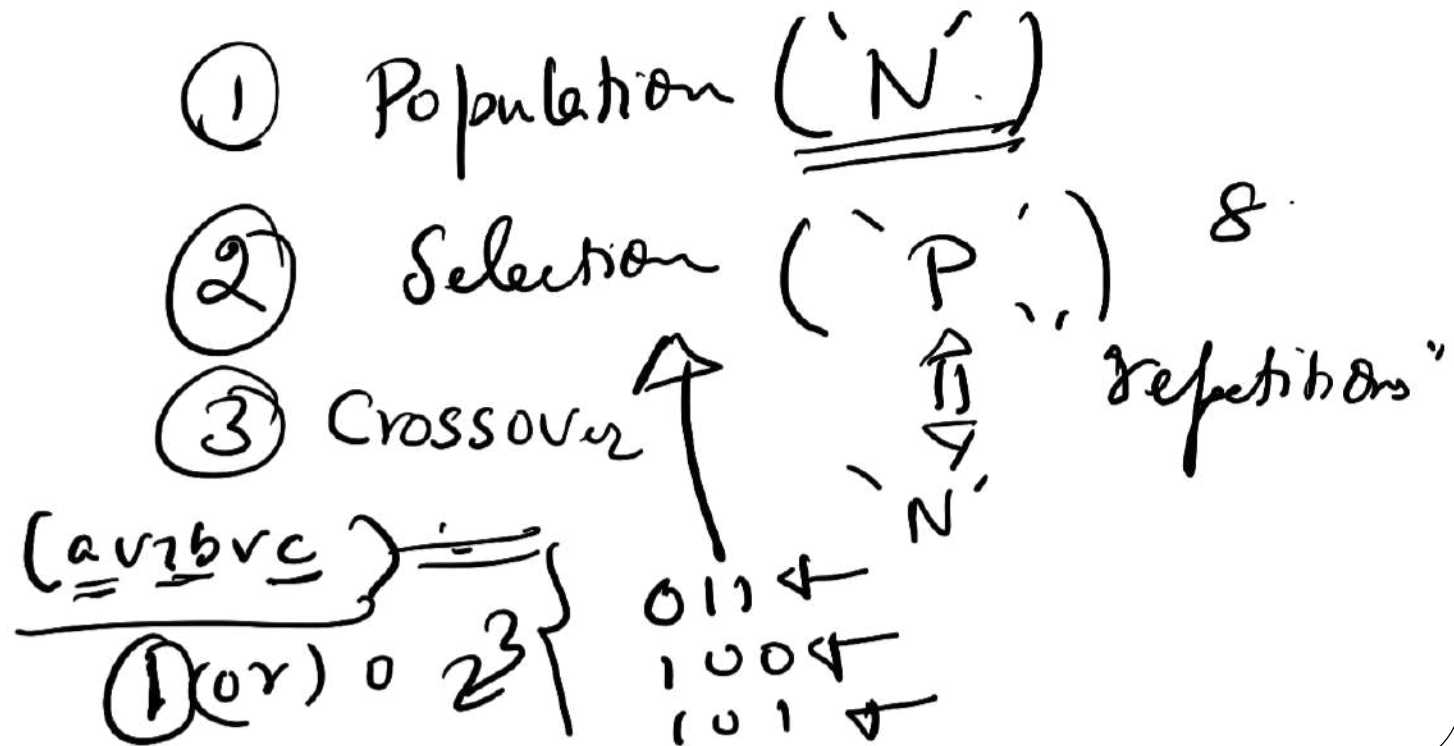 ① Population (`N´)
② Selection (`P´) 8
repetitions"
③ Crossover
`N´
(a ∨ ¬b ∨ c)
011
① (or) 0 2³ 100
101